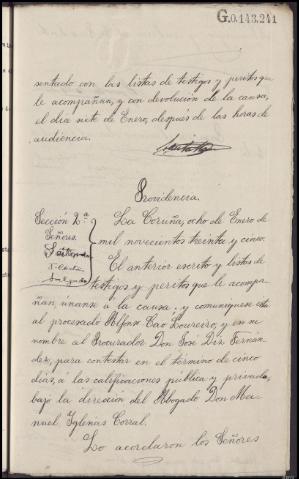 G.0.143.241
sentado con las listas de testigos y peritos que
le acompañan, y con devolución de la causa,
el día siete de Enero, después de las horas de
audiencia.
Providencia.
Sección 2ª
Señores.
La Coruña, ocho de Enero de
mil novecientos treinta y cinco.
El anterior escrito y listas de
testigos y peritos que le acompa-
ñan, únanse a la causa y comuníquese esta
al procesado Alfonso Cao Loureiro, y en su
nombre al Procurador Don José Díz Fernán-
dez, para contestar en el término de cinco
días, a las calificaciones pública y privada,
bajo la dirección del Abogado Don Ma-
nuel Iglesias Corral.
Lo acordaron los Señores